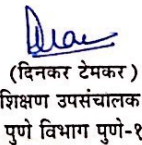 (दिनकर टेमकर )
शिक्षण उपसंचालक
पुणे विभाग पुणे-१